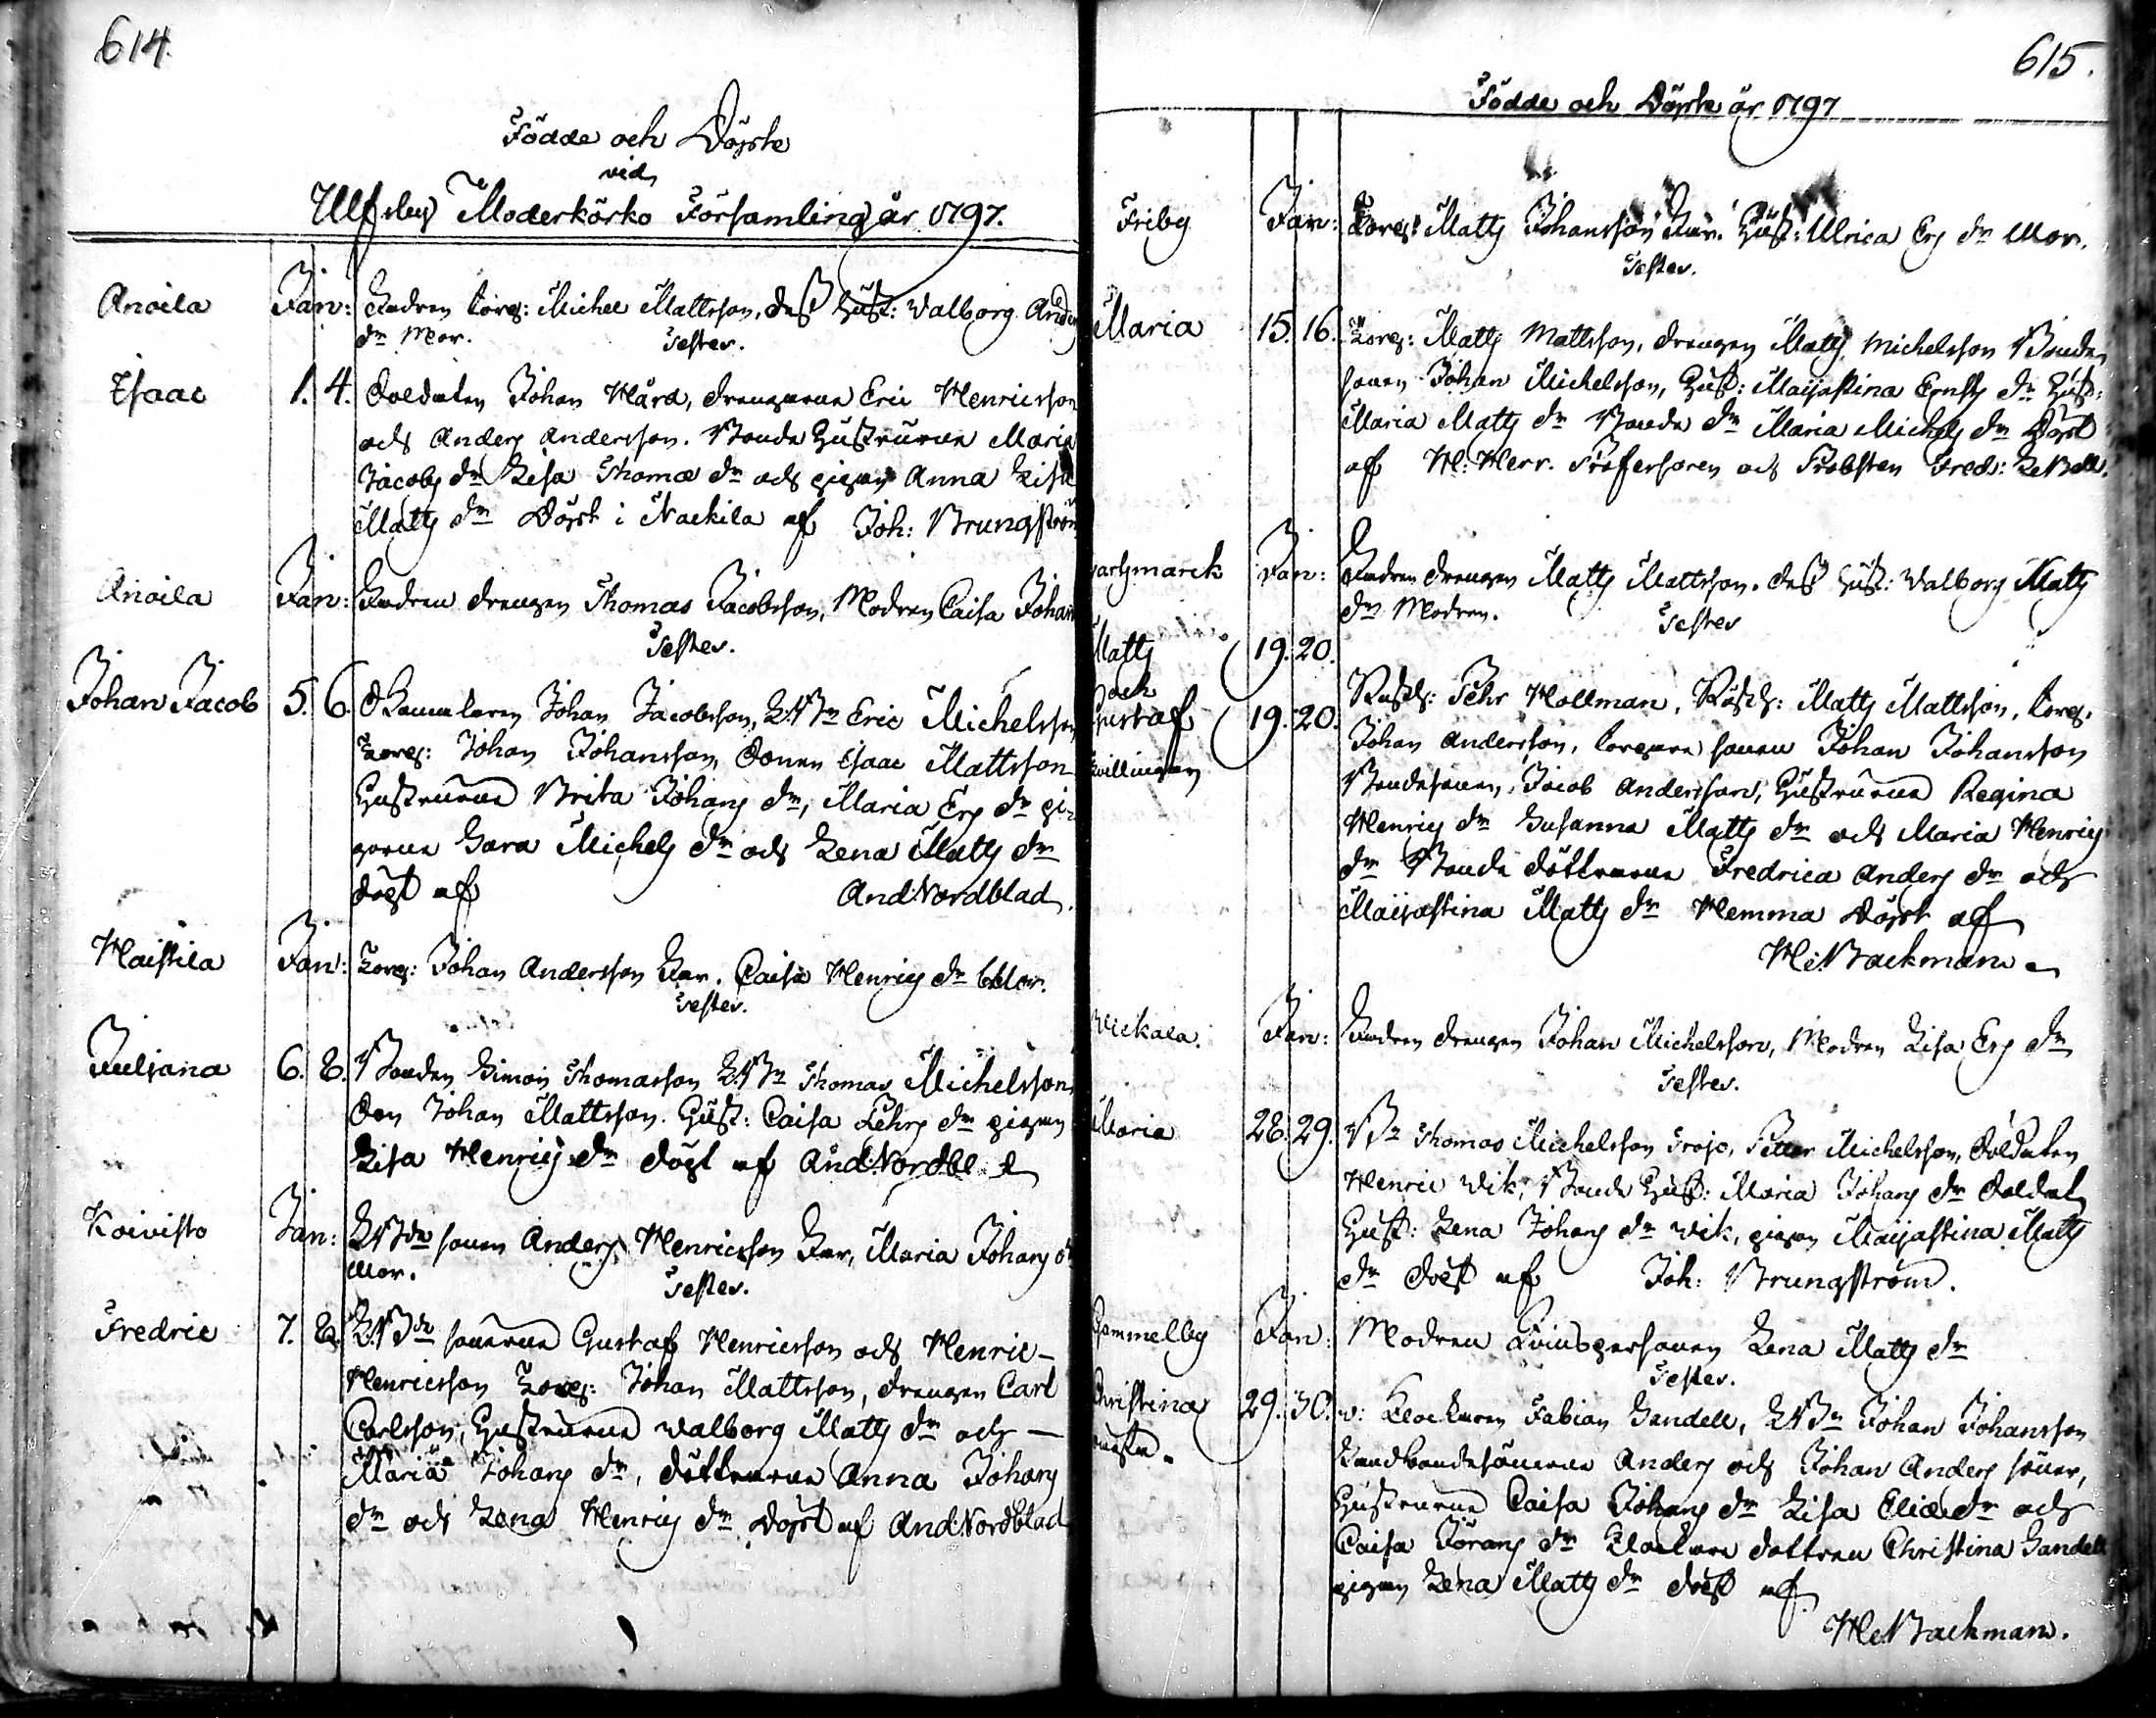 614.
Födde och Döpte
vid
Ulfsby Moderkörko Församling år 1797.
Anoila Jan: Fadren torp: Michel Mattsson, dess Hust: Valborg Anders
dr Mor.
Testes.
Isaac 1. 4. Soldaten Johan Hård, drengarne Eric Henricsson
och Anders Andersson. Bonde Hustrurne Maria
Jacobs dr Lisa Thomæ dr och pigan Anna Lisa
Matts dr Döpt i Nackila af Joh: Brungström
Anoila Jan: Fadren drengen Thomas Jacobsson, Modren Caisa Johans
Testes.
Johan Jacob 5. 6. Johan Jacobsson, LBn Eric Michelsson
Torp: Johan Johansson, Sonen Isaac Mattsson
Hustrurne Brita Johans dr, Maria Ers dr pi-
gorne Sara Michels dr och Lena Matts dr
döpt af And: Nordblad.
Haistila Jan: Torp: Johan Andersson Far. Caisa Henrics dr Mor.
Testes.
Juliana 6. 8. Bonden Simon Thomasson LBn Thomas Michelsson
Son Johan Mattsson. Hust: Caisa Pehrs dr pigan
Lisa Henrics dr döpt af And: Nordbl
Koivisto Jan: LBde sonen Anders Henricsson Far, Maria Johans dr
Mor.
Testes.
Fredric 7. 8. LBde sönerne Gustaf Henricsson och Henric
Henricsson Torp: Johan Mattsson, drengen Carl
Carlsson, Hustrurne Walborg Matts dr och
Maria Johans dr, döttrarne Anna Johans
dr och Lena Henrics dr. Döpt af And: Nordblad
615.
Födde och Döpte år 1797
Friby Jan: Torp: Matts Johansson Far. Hust: Ulrica Ers dr Mor.
Testes.
Maria 15. 16. Torp: Matts Mattsson, drengen Matts Michelsson Bonde
sonen Johan Michelsson, Hust: Maijastina Ernsts dr Hust:
Maria Matts dr Bonde dr Maria Michels dr Döpt
af H: Herr Professoren och Probsten Fred: LeBell.
Jan: Fadren drengen Matts Mattsson. dess Hust: Valborg Matts
dr Modren.
Testes
Matts 19. 20.
och
Gustaf 19. 20.
Tvillingar
Rusth: Pehr Hollman, Rusth: Matts Mattsson, torp.
Johan Andersson, torpare sonen Johan Johansson
Bondesonen, Jacob Andersson, Hustrurne Regina
Henrics dr Susanna Matts dr och Maria Henrics
dr Bonde döttrarne Fredrica Anders dr och
Maijastina Matts dr Hemma Döpt af
H: Backman
Vickala. Jan: Fadren drengen Johan Michelsson, Modren Lisa Ers dr
Testes.
Maria 28. 29. Bn Thomas Michelsson Frojo, Petter Michelsson, Soldaten
Henric Wik, Bonde Hust: Maria Johans dr Soldat
Hust: Lena Johans dr Wik, pigan Maijastina Matts
dr döpt af Joh: Brungström.
Gammelby Jan: Modren Qvinspersonen Lena Matts dr
Testes.
Christina 29. 30. v: Klockaren Fabian Sandell, LBn Johan Johansson
Landbondesönerne Anders och Johan Anders söner,
Hustrurne Caisa Johans dr Lisa Eliæ dr och
Caisa Görans dr Klockare dottren Christina Sandell
pigan Lena Matts dr döpt af
H: Backman.